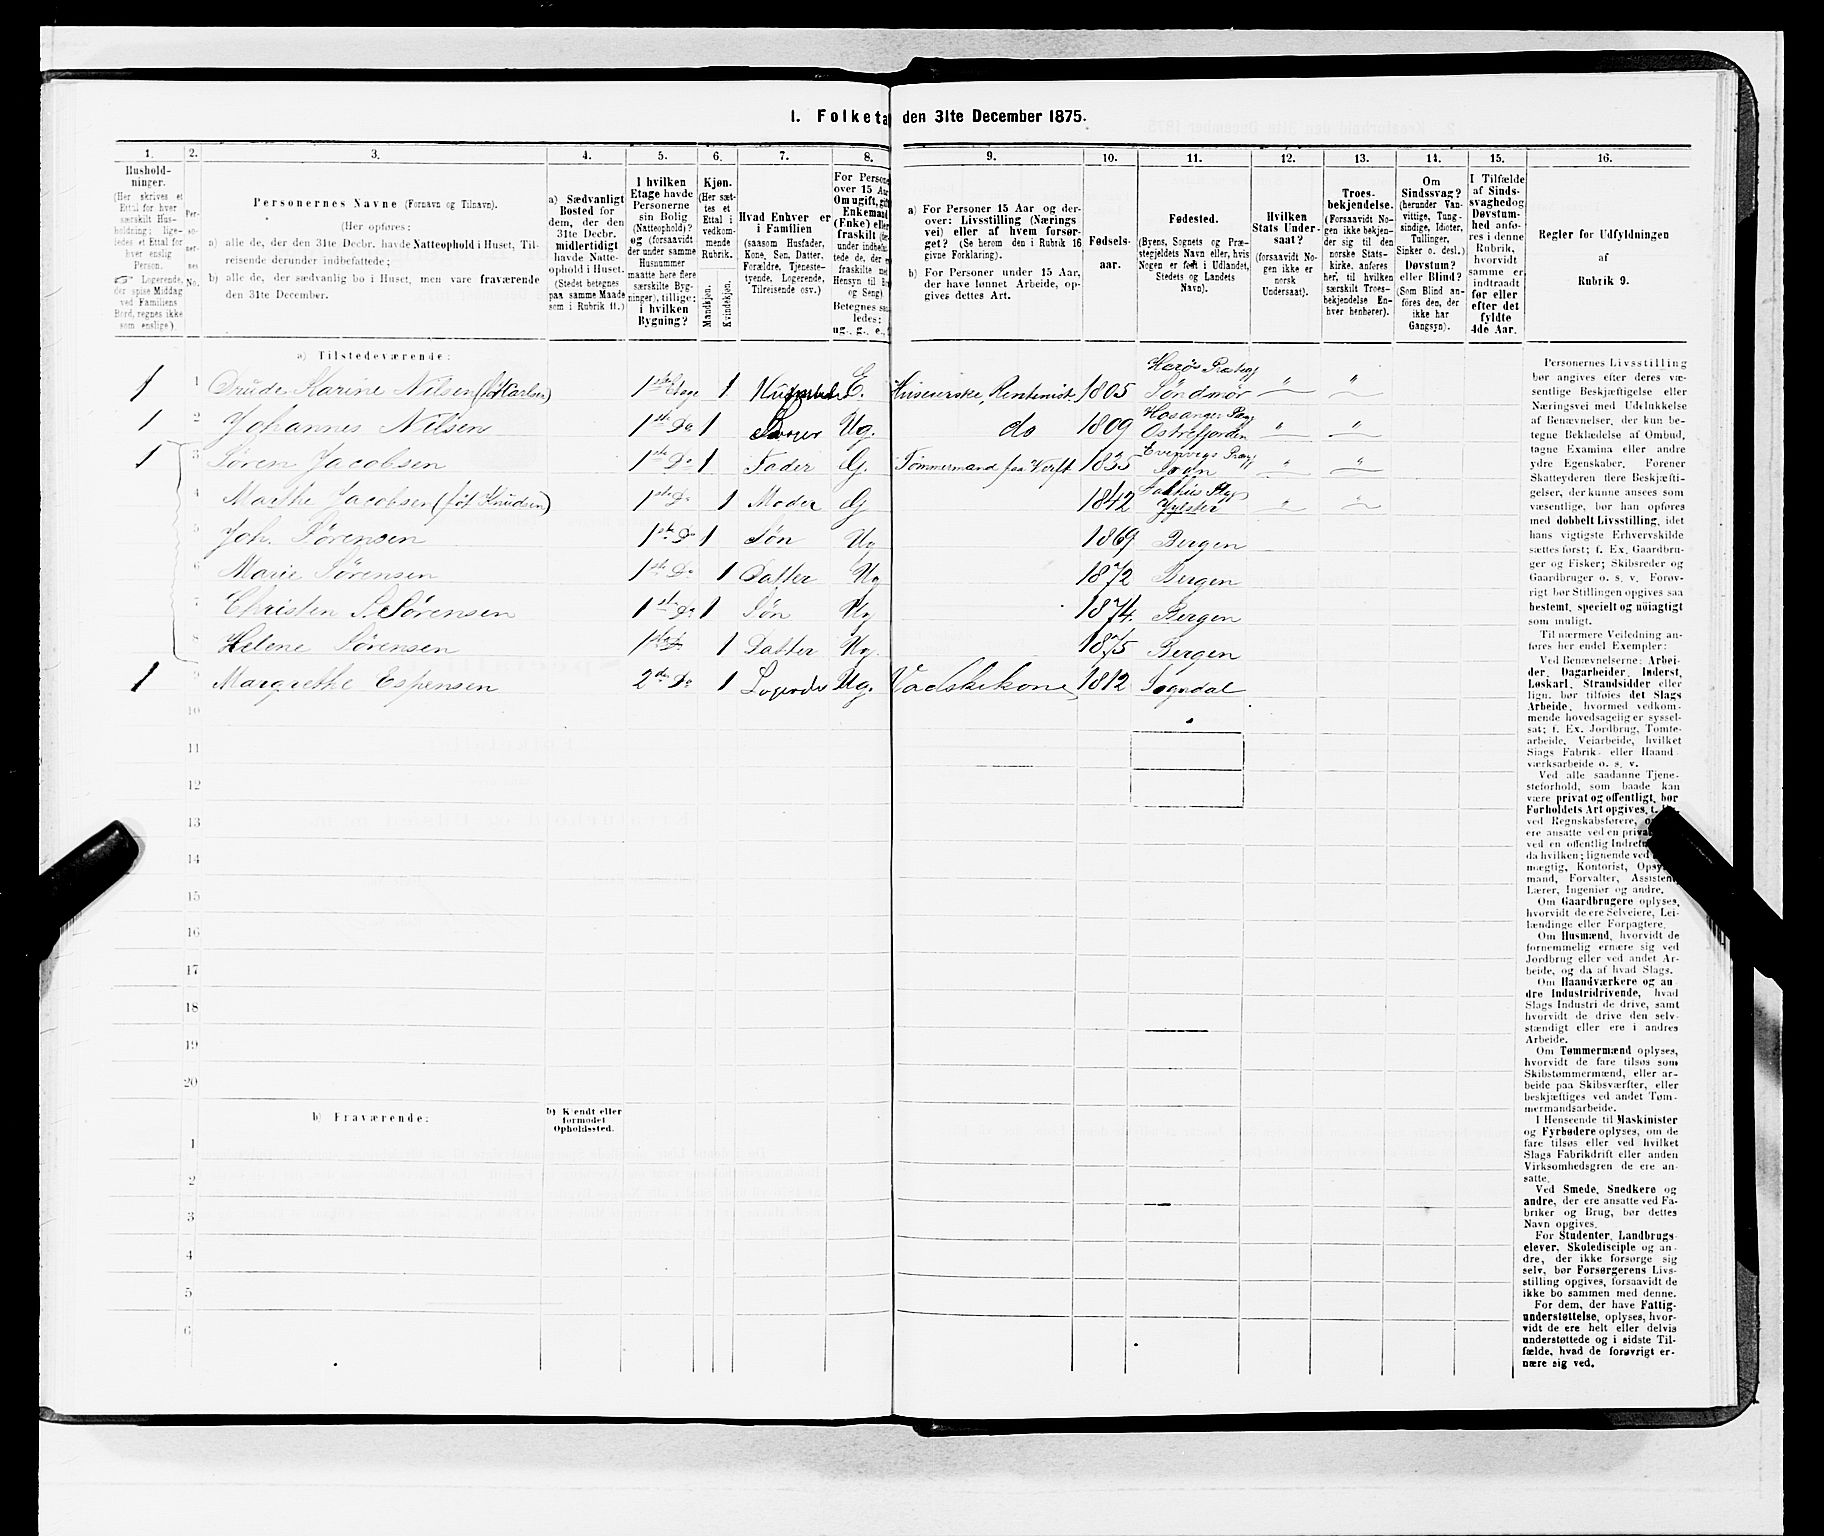 1. Folketa den 31te December 1875.
1. 2. 3. 4. 5. 6. 7. 8. 9. 10. 11. 12. 13. 14. 15. 16.
Hushold-
ninger.
(Her skrives et
Ettal for hver
særskilt Hus-
holdning; lige-
ledes et Ettal for
hver enslig
Person.
Logerende,
der spise Middag
ved Familiens
Bord, regnes ikke
som enslige).
Per-
so-
ner-
nes
No.
Personernes Navne (Fornavn og Tilnavn).
(Her opføres:
a) alle de, der den 31te Decbr. havde Natteophold i Huset, Til-
reisende derunder indbefattede;
b) alle de, der sædvanlig bo i Huset, men vare fraværende
den 31te December.
a) Sædvanligt
Bosted for
dem, der den
31te Decbr.
midlertidigt
havde Natte-
ophold i Huset.
(Stedet betegnes
paa samme Maade
som i Rubrik 11.)
I hvilken
Etage havde
Personerne
sin Bolig
(Natteophold)?
og (forsaavidt
der under samme
Husnummer
maatte høre flere
særskilte Byg-
ninger), tillige:
i hvilken
Bygning?
Kjøn.
(Her sæt-
tes et
Ettal i
vedkom-
mende
Rubrik.
Mandkjøn.
Kvindekjøn.
Hvad Enhver er
i Familien
(saasom Husfader,
Kone, Søn, Datter,
Forældre, Tjeneste-
tyende, Logerende,
Tilreisende osv.)
For Persone
over 15 Aar
Om ugift, gift
Enkemand
(Enke) eller
fraskilt
under indbefat-
tede de, der er
fraskilte
Hensyn til Bo
og Seng)
Betegnes saa-
ledes:
ug., g., e.,
a) For Personer 15 Aar og der-
over: Livsstilling (Nærings
vei) eller af hvem forsør-
get? (Se herom den i Rubrik 16
givne Forklaring).
b) For Personer under 15 Aar,
der have lønnet Arbeide, op-
gives dettes Art.
Fødsels-
aar.
Fødested.
(Byens, Sognets og Præ-
stegjeldets Navn eller, hvis
Nogen er født i Udlandet,
Stedets og Landets
Navn).
Hvilken
Stats Under-
saat?
(forsaavidt No-
gen ikke er
norsk
Undersaat).
Troes-
bekjendelse.
(Forsaavidt No-
gen ikke bekjen-
der sig til den
norske Stats-
kirke, anføres
her, til hvilken
særskilt Troes-
bekjendelse En-
hver henhører).
Om
Sindssvag?
(herunder Van-
vittige, Tung-
sindige, Idioter,
Tullinger,
Sinker o. desl.)
Døvstum?
eller Blind?
(Som Blind an-
føres den, der
ikke har
Gangsyn).
I Tilfælde
af Sinds-
svaghed og
Døvstum-
hed anfø-
res i denne
Rubrik,
hvorvidt
samme er
indtraadt
før eller
efter det
fyldte
4de Aar.
Regler for Udfyldningen
af
Rubrik 9.
a) Tilstedeværende:
1 1 Drude Karine Nilsen (fød Carlsen) 1ste Etage 1 E. Huseierske, Rentenist 1805 Harøs Søndmør " "
1 2 Johannes Nilsen 1ste Do 1 Ug. do 1809 Hosanger Ostrefjorden " "
1 3 Søren Jacobsen 1ste Do 1 Fader G. Tømmermand paa Verft 1835 Evenvigs Sogn " "
4 Marthe Jacobsen (fød Knudsen) 1ste Do 1 Moder G 1842 Jølster " "
5 Joh. Sørensen 1ste Do 1 Søn Ug 1869 Bergen
6 Marie Sørensen 1ste Do 1 Datter Ug 1872 Bergen
7 Christen Sørensen 1ste Do 1 Søn Ug 1874. Bergen
8 Helene Sørensen 1ste Do 1 Datter Ug. 1875 Bergen
1 9 Margrethe Espensen 2den Do 1 Logerde Ug. Vadskekone 1812 Sogndal
10
11
12
13
14
15
16
17
18
19
20
b) Fraværende:
b) Kjendt eller
formodet
Opholdssted.
1
2
3
4
5
6
Personernes Livsstilling
bør angives efter deres væ-
sentlige Beskjæftigelse eller
Næringsvei med Udelukkelse
af Benævnelser, der kun be-
tegne Beklædelse af Ombud,
tagne Examina eller andre
ydre Egenskaber. Forener
Skatteyderen flere Beskjæfti-
gelser, der kunne ansees som
væsentlige, bør han opføres
med dobbelt Livsstilling, idet
hans vigtigste Erhvervskilde
sættes først; f. Ex. Gaardbru-
ger og Fisker; Skibsreder og
Gaardbruger o. s. v. Forøv-
rigt bør Stillingen opgives saa
bestemt, specielt og nøiagtigt
som muligt.
Til nærmere Veiledning an-
føres her endel Exempler:
Ved Benævnelserne: Arbei-
der, Dagarbeider, Inderst,
Løskarl, Strandsidder eller
lign. bør tilføies det Slags
Arbeide, hvormed vedkom-
mende hovedsagelig er syssel-
sat; f. Ex. Jordbrug, Tomte-
arbeide, Veiarbeide, hvilket
Slags Fabrik- eller Haand
værksarbeide o. s. v.
Ved alle saadanne Tjene-
steforhold, som baade kan
være privat og offentligt, bør
Forholdets Art opgives, t.
ved Regnskabsførere,
ere ansatte ved en priva
ved en offentlig
da hvilken; lignende ved
mægtig, Kontorist, Opsy
mand, Forvalter, Assistent,
Lærer, Ingeniør og andre.
Om Gaardbrugere oplyses,
hvorvidt de ere Selveiere, Lei-
lændinge eller Forpagtere.
Om Husmænd, hvorvidt de
fornemmelig ernære sig ved
Jordbrug eller ved andet Ar-
beide, og da af hvad Slags.
Om Haandværkere og an
dre Industridrivende, hvad
Slags Industri de drive, samt
hvorvidt de drive den selv-
stændigt eller ere i andres
Arbeide.
Om Tømmermænd oplyses,
hvorvidt de fare tilsøs som
Skibstømmermænd, eller ar-
beide paa Skibsværfter, eller
beskjæftiges ved andet Tøm-
mermandsarbeide.
I Henseende til Maskinister
og Fyrbødere oplyses, om de
fare tilsøs eller ved hvilket
Slags Fabrikdrift eller anden
Virksomhedsgren de ere an-
satte.
Ved Smede, Snedkere og
andre, der ere ansatte ved Fa-
briker og Brug, bør dettes
Navn opgives.
For Studenter, Landbrugs-
elever, Skoledisciple og an-
dre, der ikke forsørge sig
selv, bør Forsørgerens Livs-
stilling opgives, forsaavidt de
ikke bo sammen med denne.
For dem, der have Fattig-
understøttelse, oplyses, hvor-
vidt de ere helt eller delvis
understøttede og i sidste Til-
fælde, hvad de forøvrigt er-
nære sig ved.